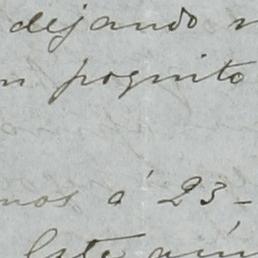 dejando
poquito
mos á 23-
Este